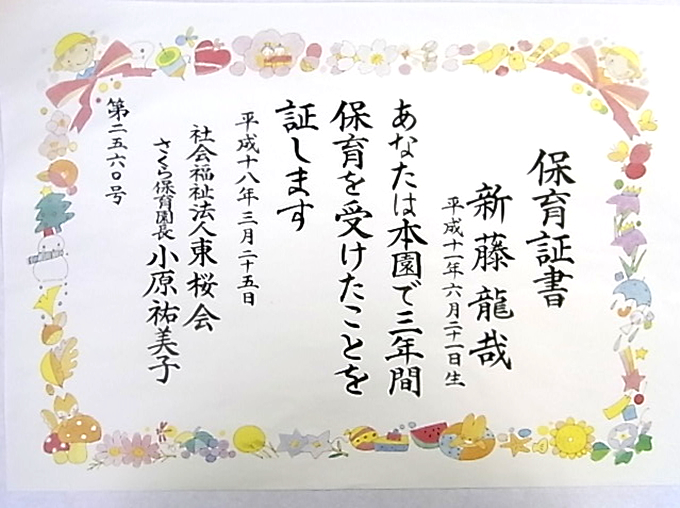 保育証書
新藤龍哉
平成十一年六月二十一日生
あなたは本園で三年間
保育を受けたことを
証します
平成十八年三月二十五日
社会福祉法人東桜会
さくら保育園長 小原祐美子
第二五六〇号